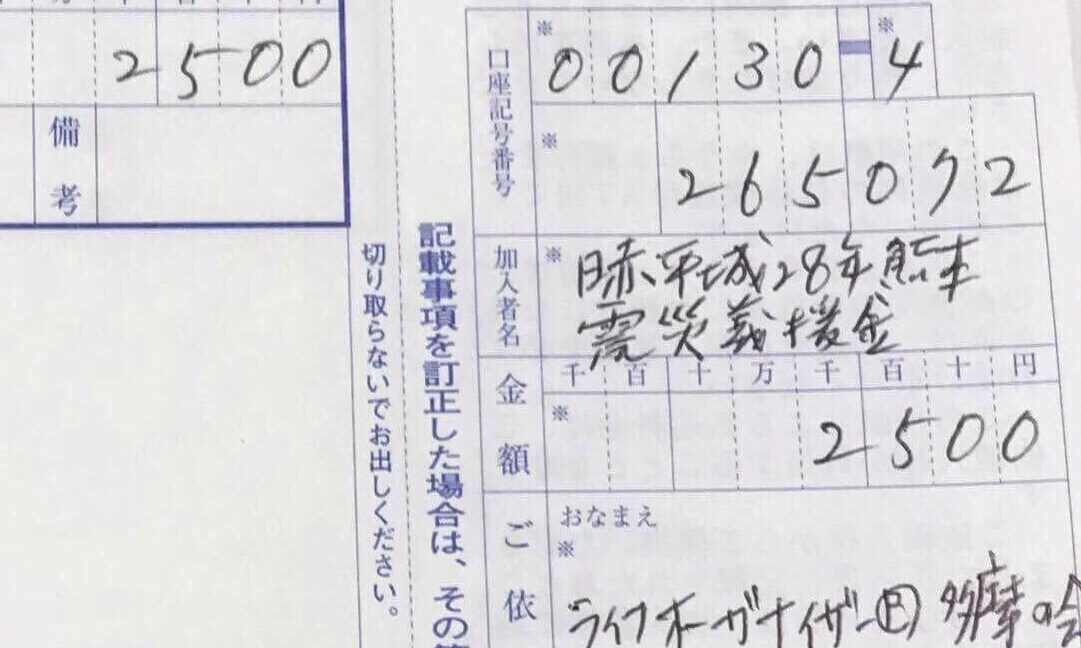 2500
備考
切り取らないでお出しください。
記載事項を訂正した場合は、その
口座記号番号
※ ※
00130-4
※
265072
加入者名
※ 日赤平城28年熊本
震災義援金
金額
千 百 十 万 千 百 十 円
※ 2500
ご依
おなまえ
※
ライフオーガナイザー 多摩の会